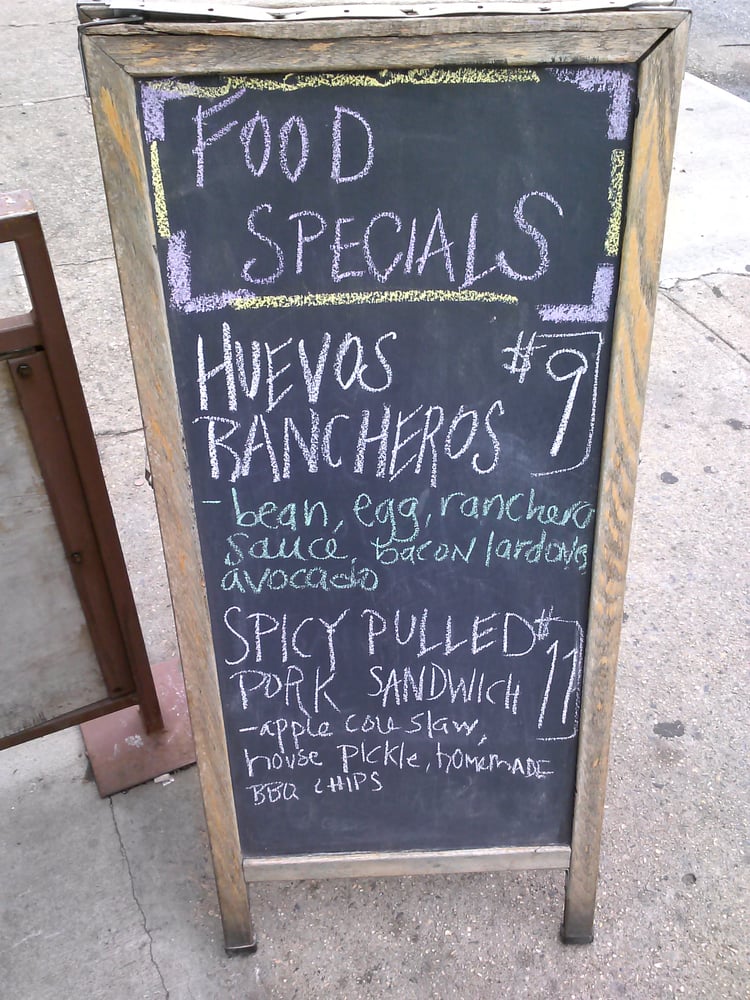 FOOD
SPECIALS
HUEVOS $9
RANCHEROS
- bean, egg, ranchero
sauce, bacon lardons,
avocado
SPICY PULLED $11
PORK SANDWICH
- apple cole slaw,
house pickle, homemade
BBQ CHIPS